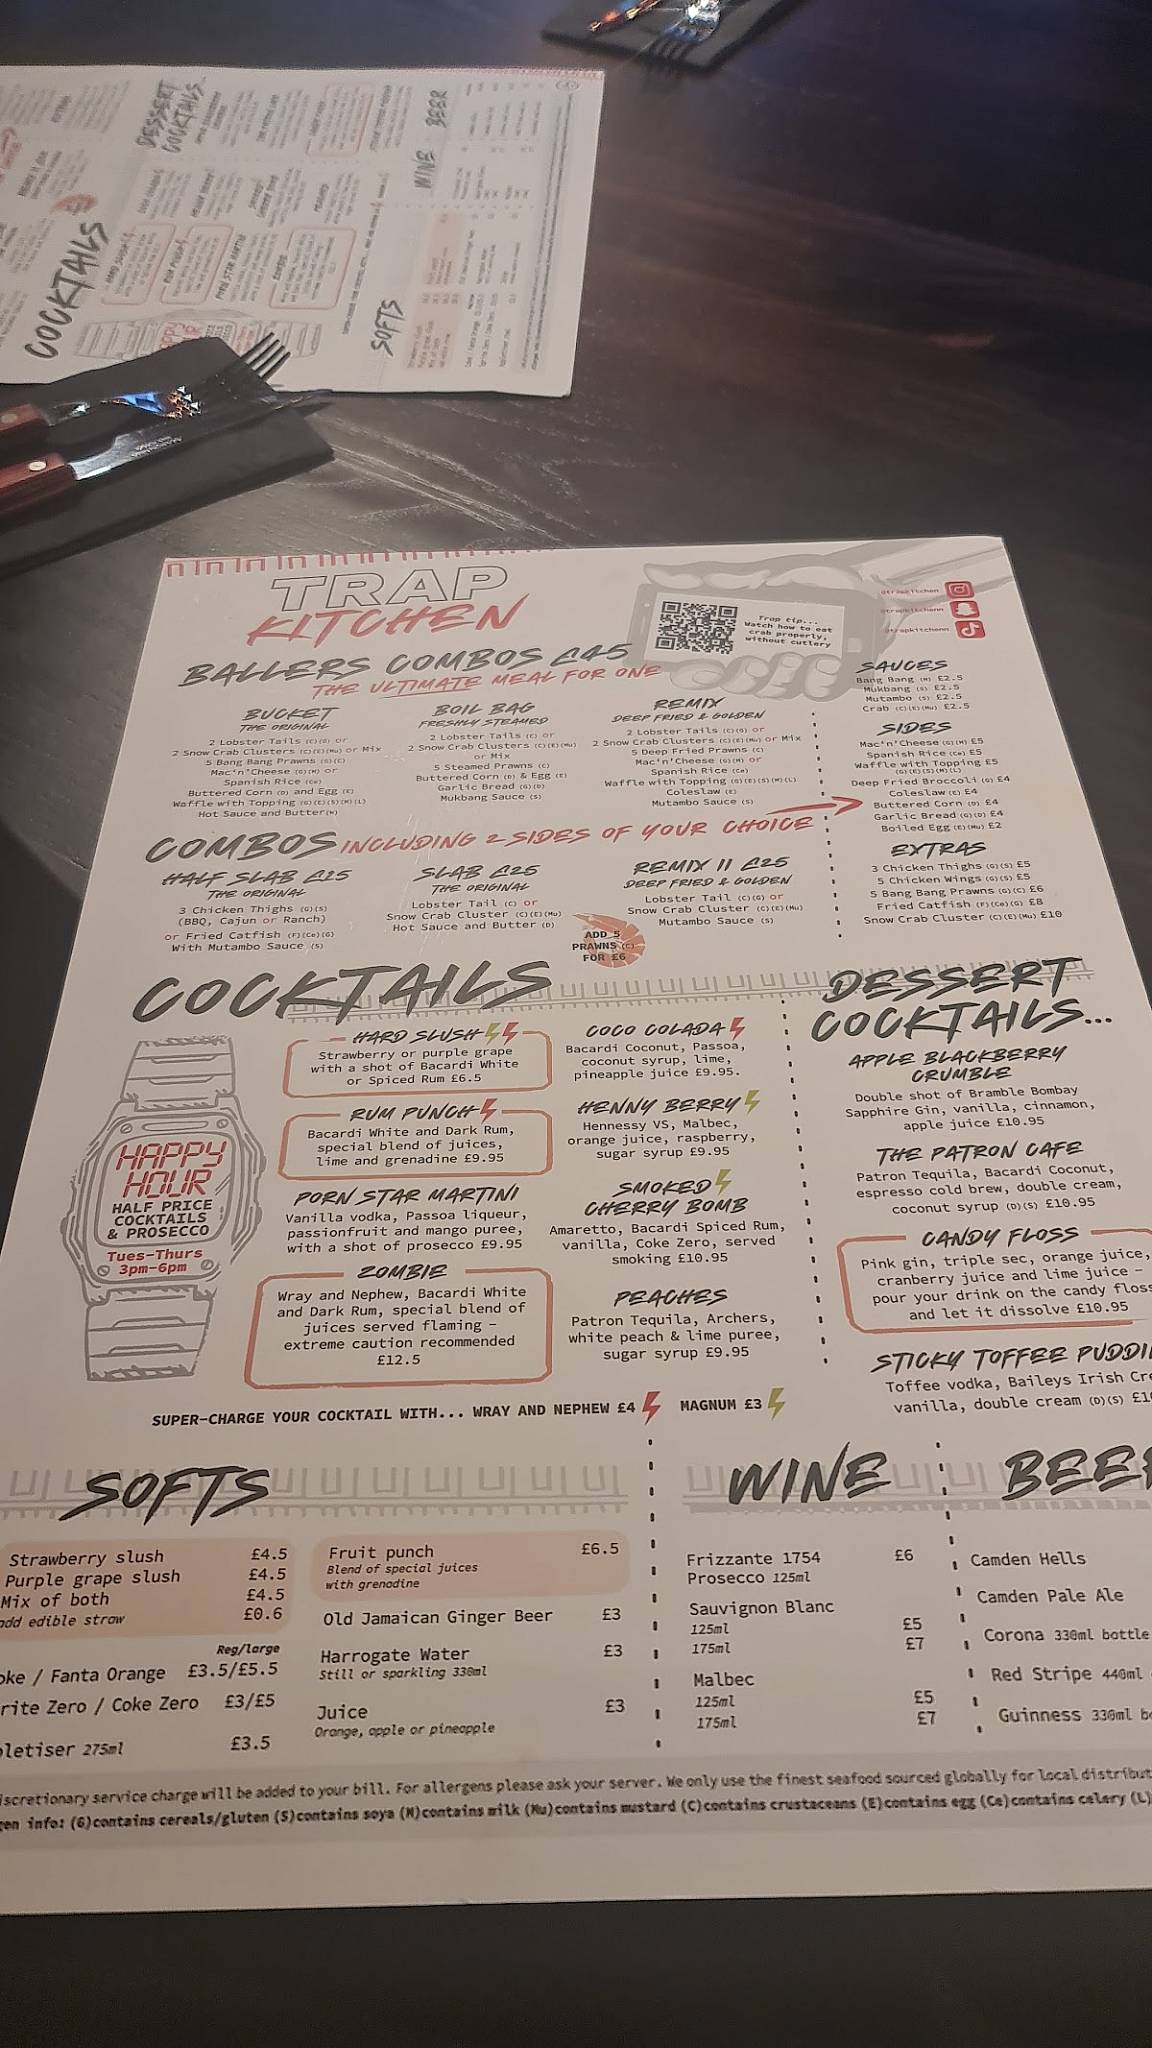 TRAP
KITCHEN
Trap tip...
Watch how to eat
crab properly,
without cutlery
@trapkitchen
@trapkitchenn
@trapkitchenn
BALLERS COMBOS £45
THE ULTIMATE MEAL FOR ONE
BUCKET
THE ORIGINAL
2 Lobster Tails (C)(G) or
2 Snow Crab Clusters (C)(E)(Mu) or Mix
5 Bang Bang Prawns (G)(C)
Mac'n'Cheese (G)(M) or
Spanish Rice (Ce)
Buttered Corn (D) and Egg (E)
Waffle with Topping (G)(E)(S)(M)(L)
Hot Sauce and Butter(M)
BOIL BAG
FRESHLY STEAMED
2 Lobster Tails (C) or
2 Snow Crab Clusters (C)(E)(Mu)
or Mix
5 Steamed Prawns (C)
Buttered Corn (D) & Egg (E)
Garlic Bread (G)(D)
Mukbang Sauce (S)
REMIX
DEEP FRIED & GOLDEN
2 Lobster Tails (C)(G) or
2 Snow Crab Clusters (C)(E)(Mu) or Mix
5 Deep Fried Prawns (C)
Mac'n'Cheese (G)(M) or
Spanish Rice (Ce)
Waffle with Topping (G)(E)(S)(M)(L)
Coleslaw (E)
Mutambo Sauce (S)
SAUCES
Bang Bang (M) £2.5
Mukbang (S) £2.5
Mutambo (S) £2.5
Crab (C)(E)(Mu) £2.5
SIDES
Mac'n'Cheese (G)(M) £5
Spanish Rice (Ce) £5
Waffle with Topping £5
(G)(E)(S)(M)(L)
Deep Fried Broccoli (G) £4
Coleslaw (E) £4
Buttered Corn (D) £4
Garlic Bread (G)(D) £4
Boiled Egg (E)(Mu) £2
EXTRAS
3 Chicken Thighs (G)(S) £5
5 Chicken Wings (G)(S) £5
5 Bang Bang Prawns (G)(C) £6
Fried Catfish (F)(Ce)(G) £8
Snow Crab Cluster (C)(E)(Mu) £10
COMBOS INCLUDING 2 SIDES OF YOUR CHOICE
HALF SLAB £15
THE ORIGINAL
3 Chicken Thighs (G)(S)
(BBQ, Cajun or Ranch)
or Fried Catfish (F)(Ce)(G)
With Mutambo Sauce (S)
SLAB £25
THE ORIGINAL
Lobster Tail (C) or
Snow Crab Cluster (C)(E)(Mu)
Hot Sauce and Butter (D)
REMIX II £25
DEEP FRIED & GOLDEN
Lobster Tail (C)(G) or
Snow Crab Cluster (C)(E)(Mu)
Mutambo Sauce (S)
ADD 5
PRAWNS (C)
FOR £6
COCKTAILS
HAPPY
HOUR
HALF PRICE
COCKTAILS
& PROSECCO
Tues-Thurs
3pm-6pm
HARD SLUSH
Strawberry or purple grape
with a shot of Bacardi White
or Spiced Rum £6.5
RUM PUNCH
Bacardi White and Dark Rum,
special blend of juices,
lime and grenadine £9.95
PORN STAR MARTINI
Vanilla vodka, Passoa liqueur,
passionfruit and mango puree,
with a shot of prosecco £9.95
ZOMBIE
Wray and Nephew, Bacardi White
and Dark Rum, special blend of
juices served flaming –
extreme caution recommended
£12.5
COCO COLADA
Bacardi Coconut, Passoa,
coconut syrup, lime,
pineapple juice £9.95.
HENNY BERRY
Hennessy VS, Malbec,
orange juice, raspberry,
sugar syrup £9.95
SMOKED
CHERRY BOMB
Amaretto, Bacardi Spiced Rum,
vanilla, Coke Zero, served
smoking £10.95
PEACHES
Patron Tequila, Archers,
white peach & lime puree,
sugar syrup £9.95
SUPER-CHARGE YOUR COCKTAIL WITH... WRAY AND NEPHEW £4 MAGNUM £3
DESSERT
COCKTAILS...
APPLE BLACKBERRY
CRUMBLE
Double shot of Bramble Bombay
Sapphire Gin, vanilla, cinnamon,
apple juice £10.95
THE PATRON CAFE
Patron Tequila, Bacardi Coconut,
espresso cold brew, double cream,
coconut syrup (D)(S) £10.95
CANDY FLOSS
Pink gin, triple sec, orange juice,
cranberry juice and lime juice –
pour your drink on the candy floss
and let it dissolve £10.95
STICKY TOFFEE PUDDI
Toffee vodka, Baileys Irish Cre
vanilla, double cream (D)(S) £1
SOFTS
Strawberry slush £4.5
Purple grape slush £4.5
Mix of both £4.5
add edible straw £0.6
Reg/large
oke / Fanta Orange £3.5/£5.5
rite Zero / Coke Zero £3/£5
letiser 275ml £3.5
Fruit punch £6.5
Blend of special juices
with grenadine
Old Jamaican Ginger Beer £3
Harrogate Water £3
Still or sparkling 330ml
Juice £3
Orange, apple or pineapple
WINE
Frizzante 1754 £6
Prosecco 125ml
Sauvignon Blanc
125ml £5
175ml £7
Malbec
125ml £5
175ml £7
BEE
Camden Hells
Camden Pale Ale
Corona 330ml bottle
Red Stripe 440ml
Guinness 330ml b
iscretionary service charge will be added to your bill. For allergens please ask your server. We only use the finest seafood sourced globally for local distribut
gen info: (G)contains cereals/gluten (S)contains soya (M)contains milk (Mu)contains mustard (C)contains crustaceans (E)contains egg (Ce)contains celery (L)
COCKTAILS
DESSERT
COCKTAILS...
SOFTS
WINE
BEER